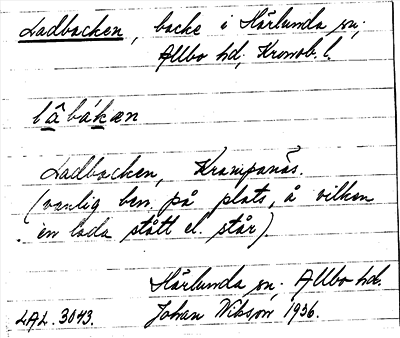 Ladbacken, backe i Härlunda sn;
Allbo hd, Kronob. l.
lâbákan
Ladbacken, Krampanäs.
(vanlig ben. på plats, å vilken
en lada stått el. står).
Härlunda sn; Allbo hd.
LAL. 3043. Johan Nilsson 1936.